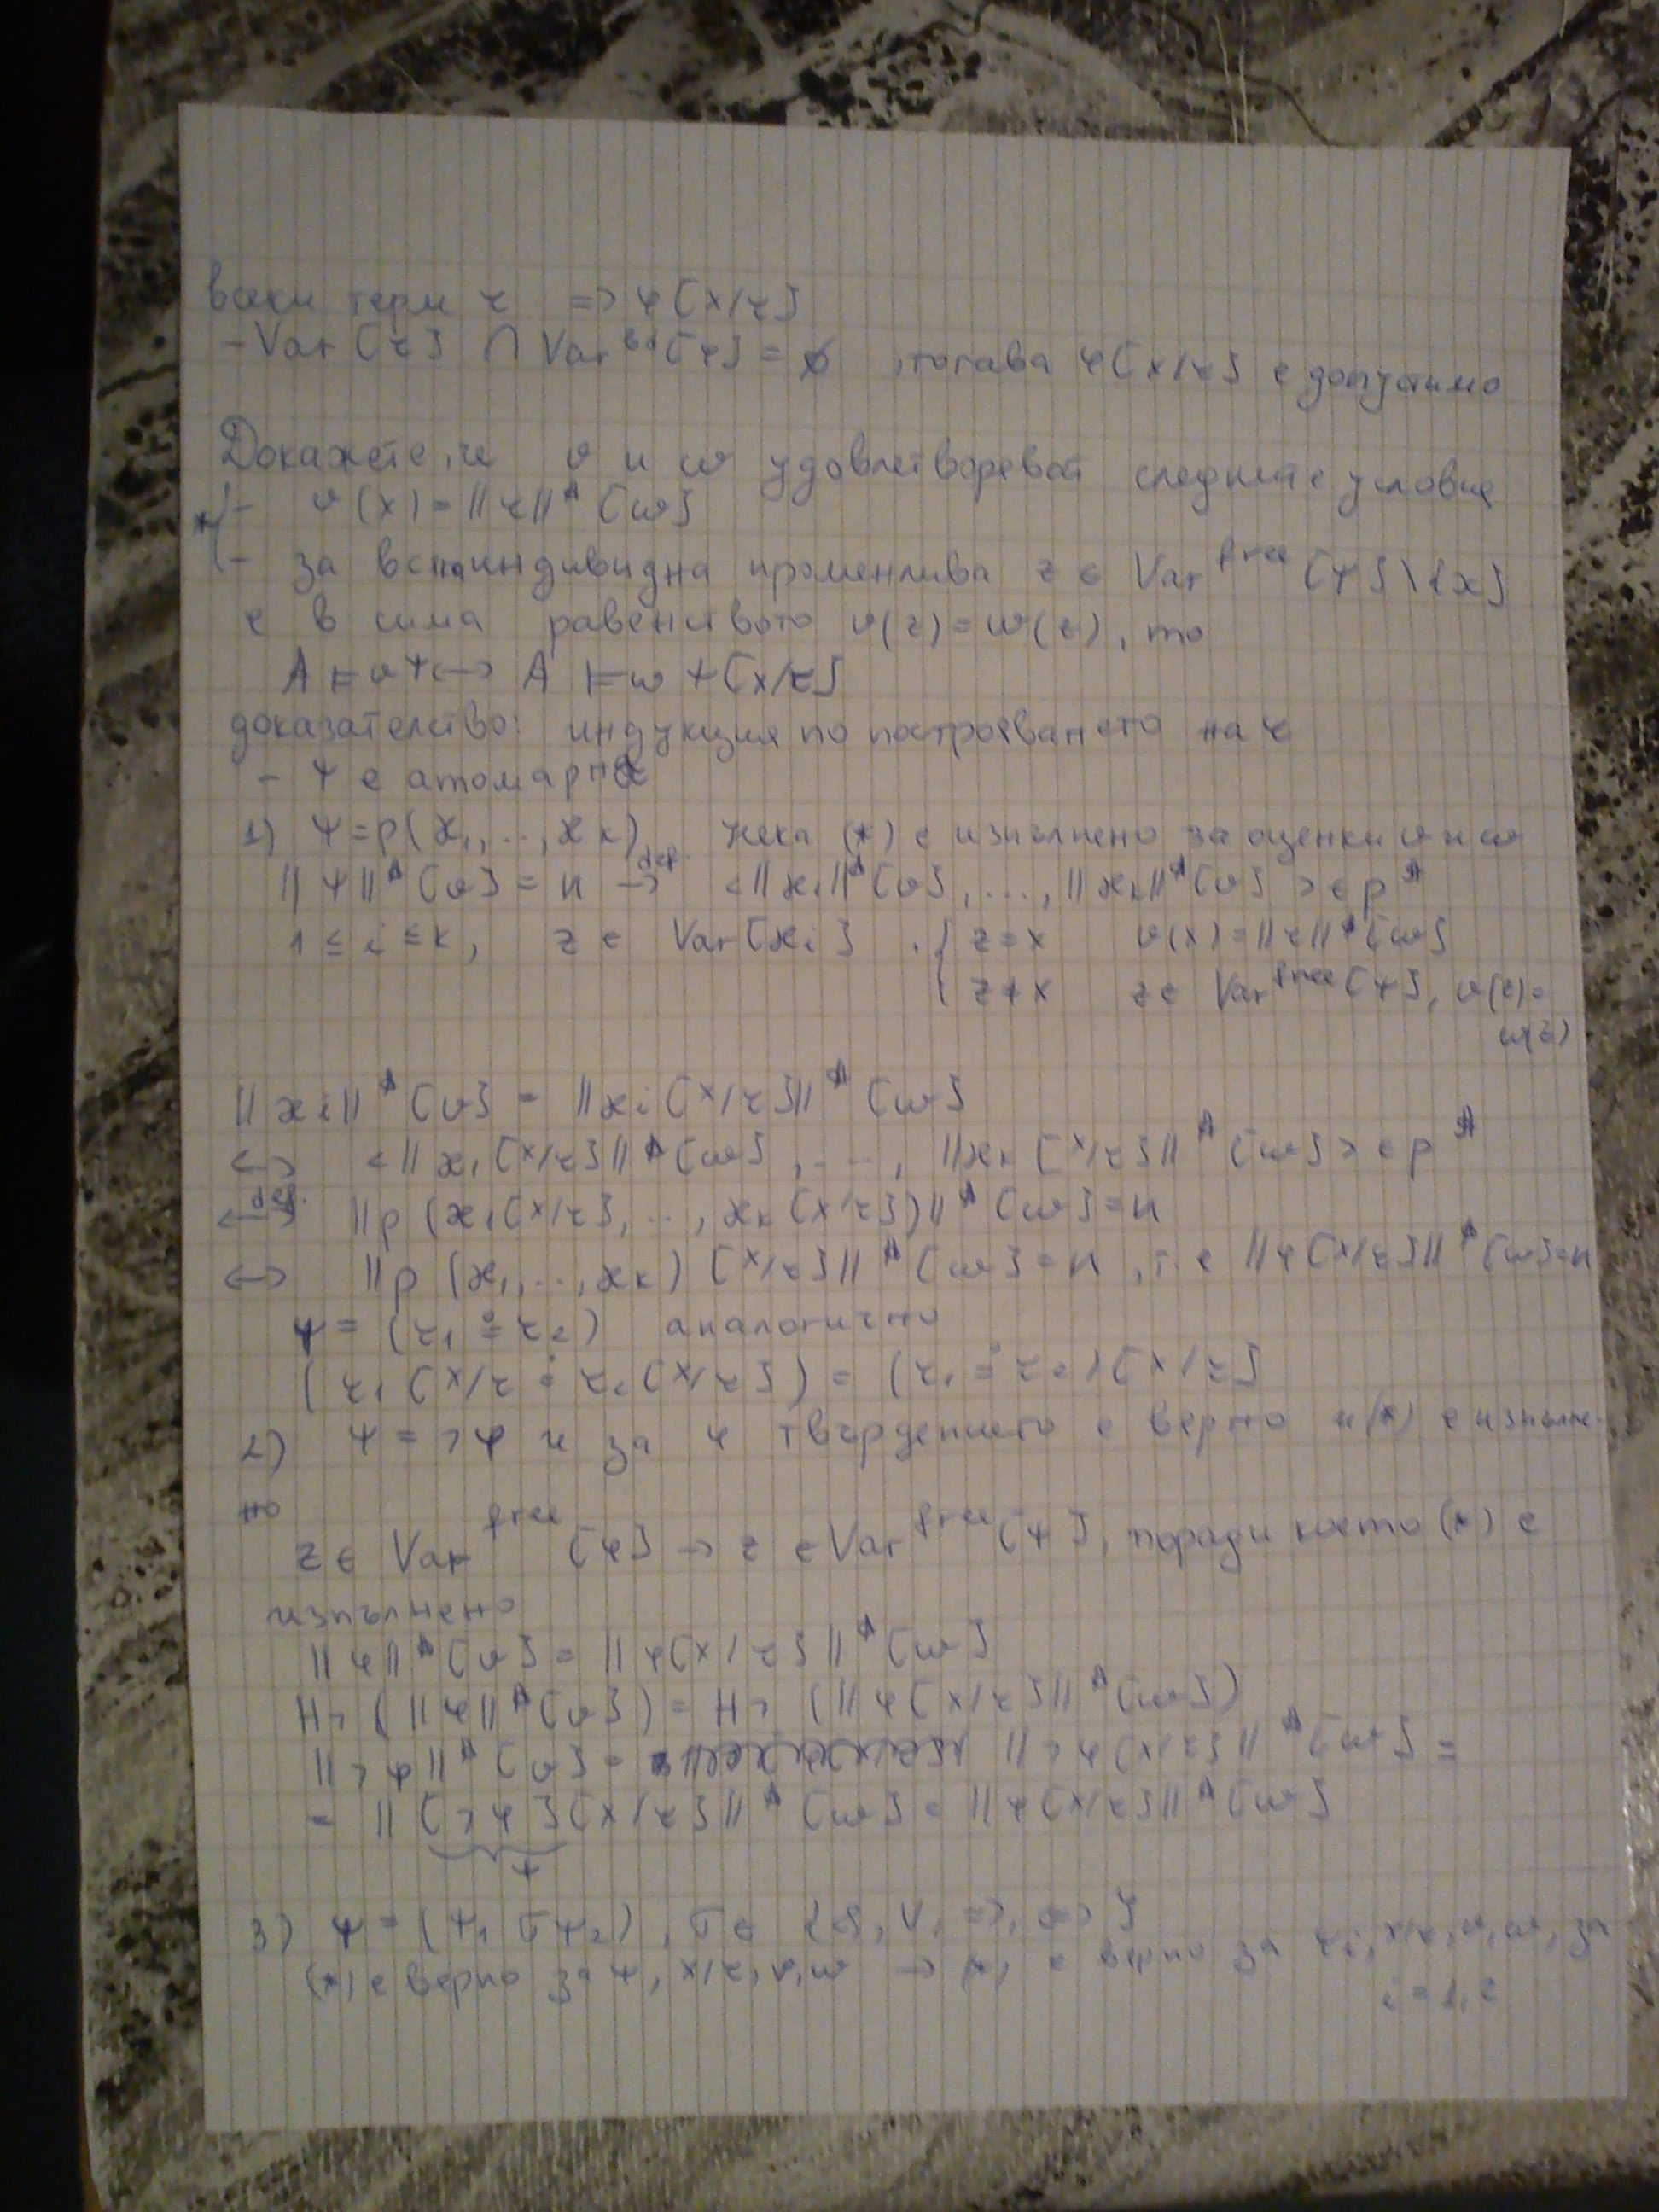 всеки терм τ => φ[x/τ]
- Var[τ] ∩ Var^bd[φ] = ∅, тогава φ[x/τ] е допустимо
Докажете, че v и w удовлетворяват следните условия
*) - v(x) = ||τ||^A [w]
- за всяка индивидна променлива z ∈ Var^free[ψ]\{x}
е в сила равенството v(z) = w(z), то
A ⊨v ψ <-> A ⊨w ψ[x/τ]
доказателство: индукция по построяването на φ
- ψ е атомарна
1) ψ = p(ϰ1, ..., ϰk) нека (*) е изпълнено за оценки v и w
||ψ||^A [v] = И ->def. <||ϰ1||^A [v], ..., ||ϰk||^A [v]> ∈ p^A
1 ≤ i ≤ k, z ∈ Var[ϰi] . { z = x v(x) = ||τ||^A [w]
z ≠ x z ∈ Var^free[ψ], v(z) =
w(z)
||ϰi||^A [v] = ||ϰi[x/τ]||^A [w]
<-> <||ϰ1[x/τ]||^A [w], ..., ||ϰk[x/τ]||^A [w]> ∈ p^A
<->def. ||p(ϰ1[x/τ], ..., ϰk[x/τ])||^A [w] = И
<-> ||p(ϰ1, ..., ϰk)[x/τ]||^A [w] = И, т.е ||φ[x/τ]||^A [w] = И
ψ = (τ1 ≐ τ2) аналогично
(τ1[x/τ ≐ τ2[x/τ]) = (τ1 ≐ τ2)[x/τ]
2) ψ = ¬φ и за φ твърдението е вярно и (*) е изпълне-
но
z ∈ Var^free[φ] -> z ∈ Var^free[ψ], поради което (*) е
изпълнено
||φ||^A [v] = ||φ[x/τ]||^A [w]
H¬(||φ||^A [v]) = H¬(||φ[x/τ]||^A [w])
||¬φ||^A [v] = ||¬φ[x/τ]||^A [w] =
= ||[¬φ][x/τ]||^A [w] = ||φ[x/τ]||^A [w]
ψ
3) ψ = (ψ1 σ ψ2), σ ∈ {&, ∨, =>, <=>}
(*) е вярно за ψ, x/τ, v, w -> (*) е вярно за x/τ, v, w, за
i = 1, 2